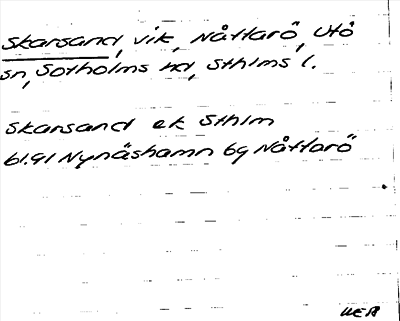 Skarsand, vik, Nåttarö, Utö
sn, Sotholms hd, Sthlms l.
Skarsand ek Sthlm
61.91 Nynäshamn 6g Nåttarö
WEA